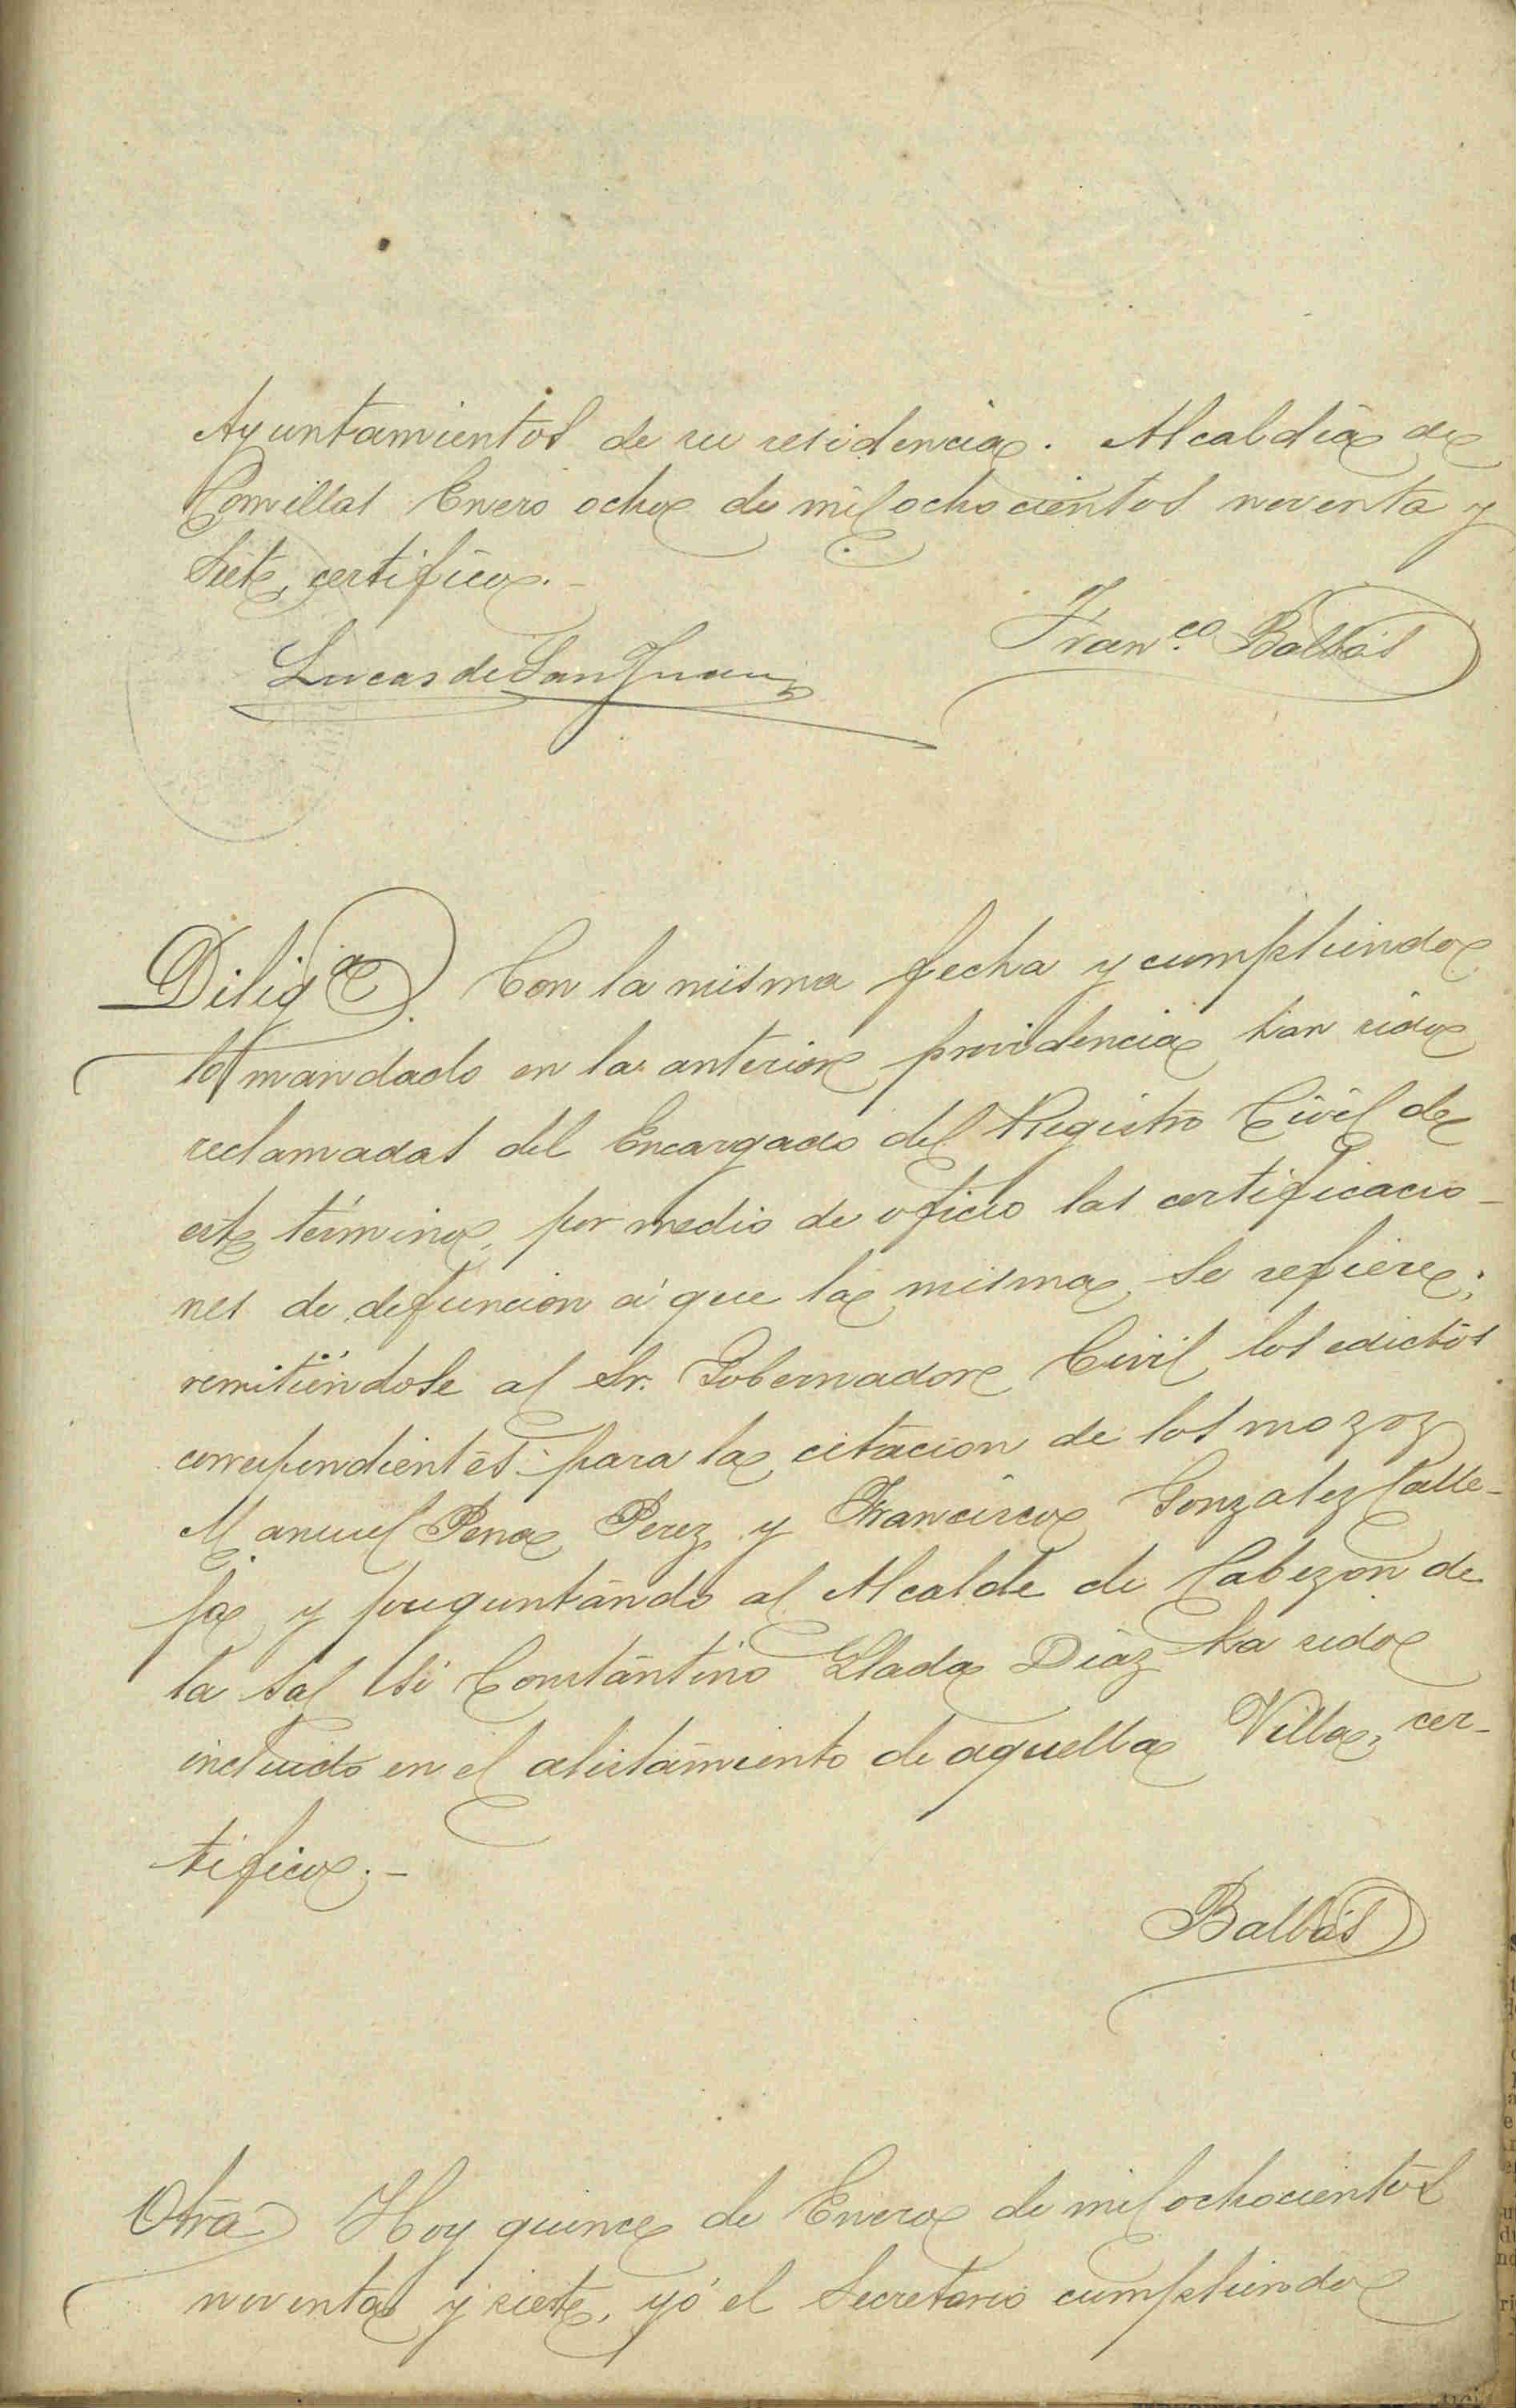 Ayuntamientos de su residencia. Alcaldia de
Comillas Enero ocho de mil ochocientos noventa y
siete, certifico.-
Franco. Balbás
Lucas de San Juan
Diliga. Con la misma fecha y cumpliendo
lo mandado en la anterior providencia han sido
reclamadas del Encargado del Registro Civil de
este término, por medio de oficio las certificacio-
nes de defuncion á que la misma se refiere;
remitiéndose al Sr. Gobernador Civil los edictos
correspondientes para la citacion de los mozoz
Manuel Pena Perez y Francisco Gonzalez Calle-
ja y preguntando al Alcalde de Cabezon de
la Sal si Constantino Llada Diaz ha sido
incluido en el alistamiento de aquella Villa, cer-
tifico.-
Balbás
Otra Hoy quince de Enero de mil ochocientos
noventa y siete, yó el Secretario cumpliendo